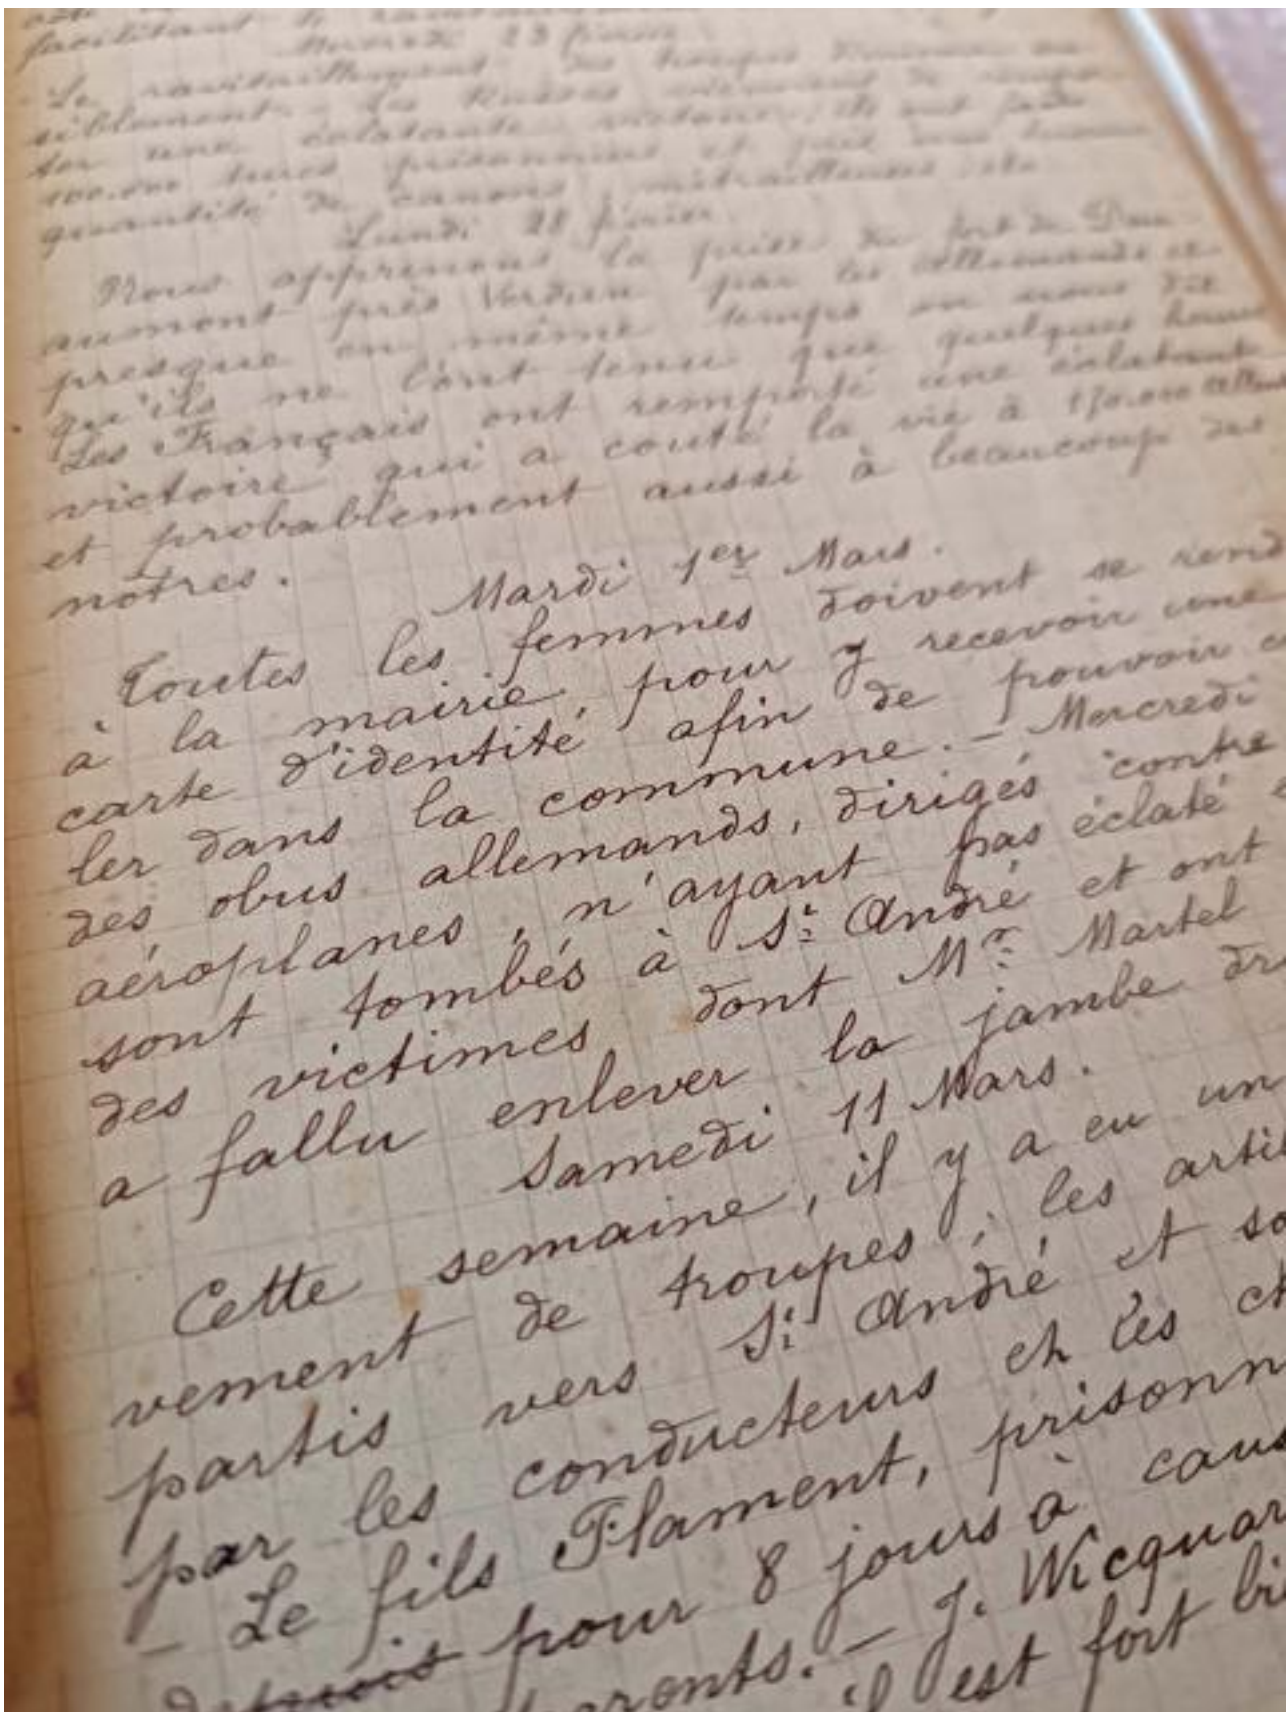 facilitant le
Mercredi 23 février
Le ravitaillement des troupes diminue
siblement. Les Russes viennent de rempor-
ter une éclatante victoire, ils ont fait
100.000 turcs prisonniers et pris une
quantité de canons, mitrailleuses etc
Lundi 28 février
Nous apprenons la prise du fort de Dou-
aumont près Verdun par les allemands et
presque en même temps on nous dit
qu'ils ne l'ont tenu que quelques heures
Les Français ont remporté une éclatante
victoire qui a couté la vie à 170.000 allem
et probablement aussi à beaucoup des
nôtres.
Mardi 1er Mars.
Toutes les femmes doivent se rend
à la mairie, pour y recevoir une
carte d'identité afin de pouvoir c
ler dans la commune. - Mercredi
des obus allemands, dirigés contre
aéroplanes, n'ayant pas éclaté
sont tombés à St André et ont
des victimes dont Mr Martel
a fallu enlever la jambe dro
Samedi 11 Mars.
Cette semaine, il y a eu un
vement de troupes; les artil
partis vers St André et so
par les conducteurs et les ch
- Le fils Flament, prisonn
depuis pour 8 jours à caus
parents. - J. Wicquar
il est fort bie